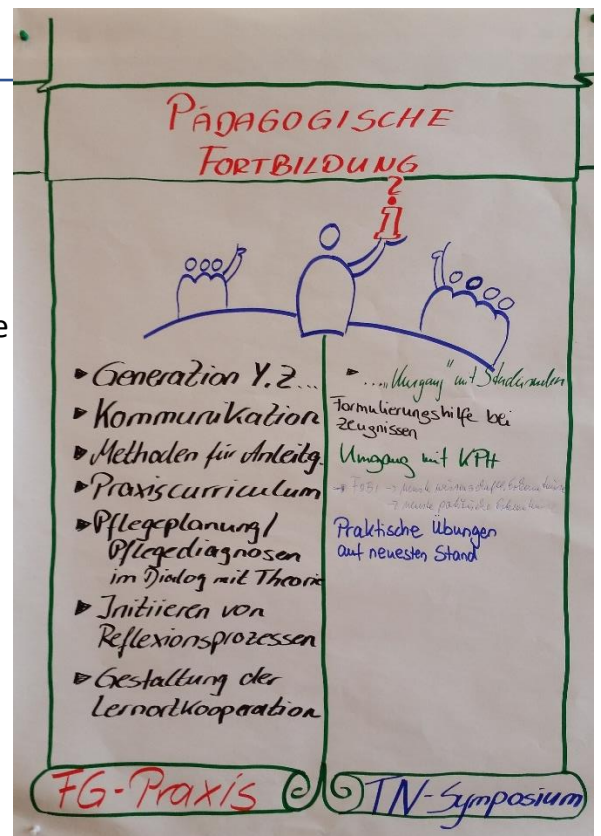 PÄDAGOGISCHE
FORTBILDUNG
?
i
e
▸ Generation Y. Z...
▸ Kommunikation
▸ Methoden für Anleitg.
▸ Praxiscurriculum
▸ Pflegeplanung/
Pflegediagnosen
im Dialog mit Theorie
▸ Initiieren von
Reflexionsprozessen
▸ Gestaltung der
Lernortkooperation
▸ ...."Umgang" mit Studierenden
Formulierungshilfe bei
Zeugnissen
Umgang mit KPH
→ FoBi → neuste
→ neuste
Praktische Übungen
auf neuesten Stand
FG-Praxis
TN-Symposium